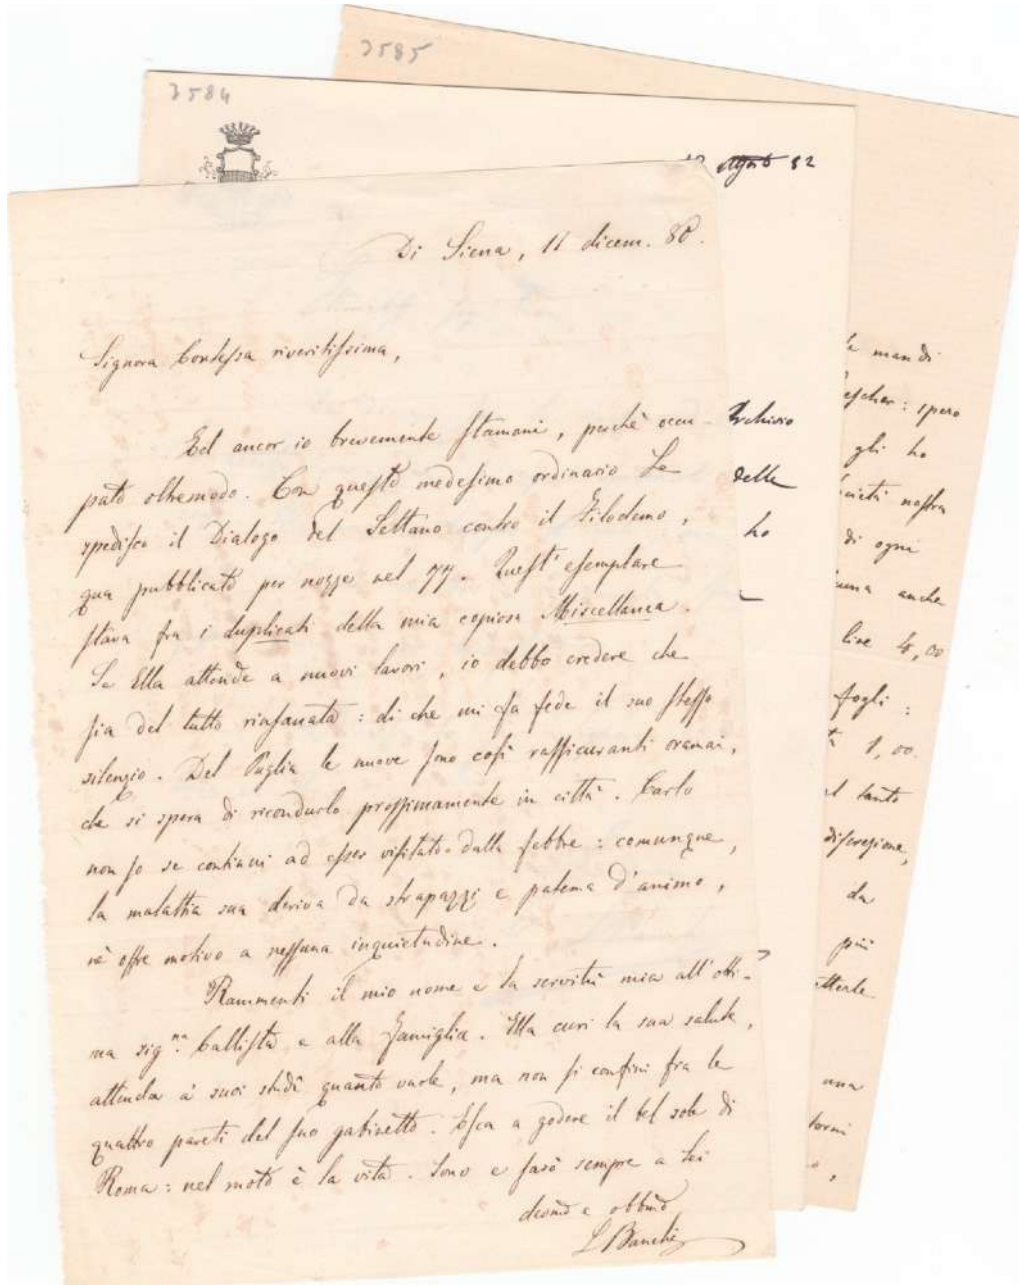 3585
3584
82
Di Siena, 11 dicem. 80.
Signora Contessa riveritissima,
Ed ancor io brevemente stamani, perchè occu-
pato oltremodo. Con questo medesimo ordinario Le
spedisco il Dialogo del Settano contro il Filodemo,
qua pubblicato per nozze nel 77. Quest' esemplare
stava fra i duplicati della mia copiosa Miscellanea.
Se Ella attende a nuovi lavori, io debbo credere che
sia del tutto risanata: di che mi fa fede il suo stesso
silenzio. Del Puglia le nuove sono così rassicuranti oramai,
che si spera di ricondurlo prossimamente in città. Carlo
non so se continui ad esser visitato dalla febbre: comunque,
la malattia sua deriva da strapazzi e patema d'animo,
nè offre motivo a nessuna inquietudine.
Rammenti il mio nome e la servitù mia all' otti-
ma sig.na Callista e alla famiglia. Ella curi la sua salute,
attenda a' suoi studi quanto vuole, ma non si confini fra le
quattro pareti del suo gabinetto. Esca a godere il bel sole di
Roma: nel moto è la vita. Sono e sarò sempre a Lei
devmo e obbmo
L Banchi
Archivio
delle
ho
mandi
: spero
gli ho
nostra
di ogni
anche
lire 4,00
fogli :
1,00.
tanto
discrezione,
da
più
una